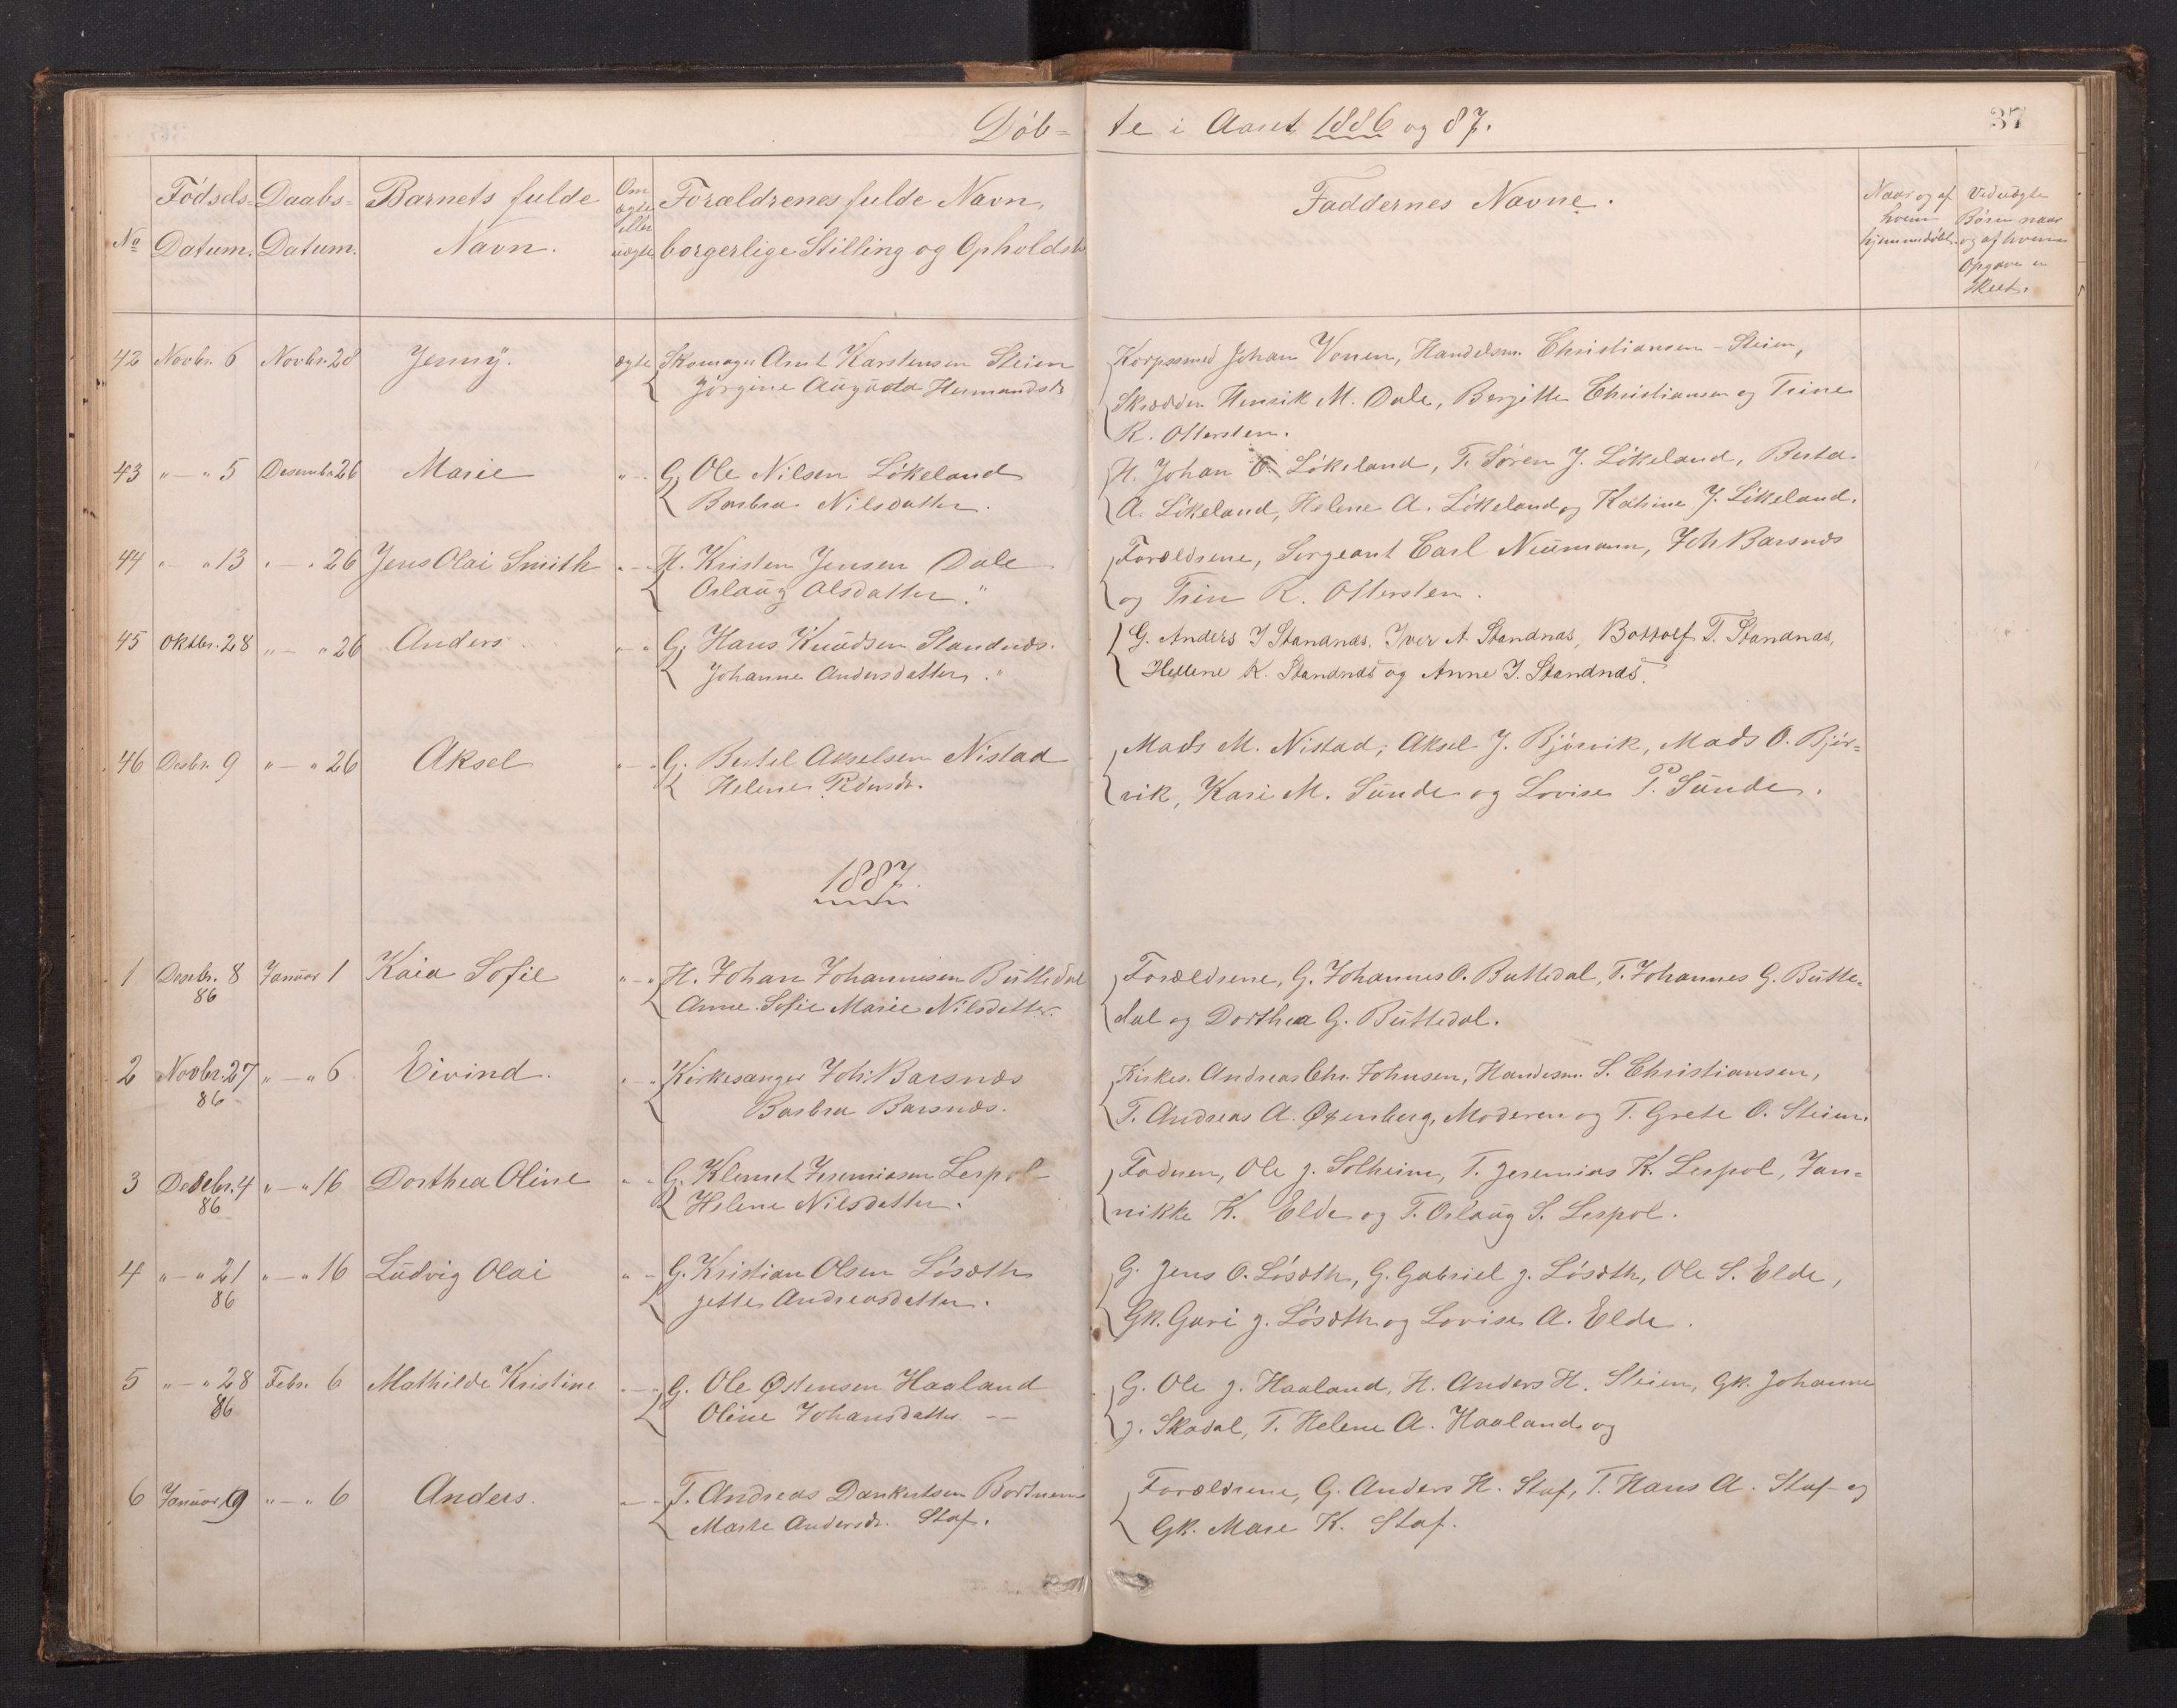 Döb= te i Aaret 1886 og 87.
37
No Fødsels= Datum. Daabs= Datum. Barnets fulde Navn. Om ægte eller uægte Forældrenes fulde Navn, borgerlige Stilling og Opholdst Faddernes Navne. Naar og af hvem hjemmedøbt. Ved uægte Børn naar og af hvem Opgave er skeet.
42 Novbr. 6 Novbr. 28 Jenny. ægte Skomager Arnt Karstensen Steien
Jörgine Augusta Hermandsd.
Korpssmed Johan Vonen, Handelsm. Christiansen - Steien,
Skrædder Henrik M. Dale, Bergitte Christiansen og Trine
R. Ottersten.
43 " — " 5 Desembr 26 Marie " — G. Ole Nilsen Lökeland
Barbra Nilsdatter.
H. Johan Lökeland, T. Sören J. Lökeland, Berta
A. Lökeland, Helene A. Lökeland og Katrine J. Lökeland.
44 " — " 13 " — " 26 Jens Olai Smith " — H. Kristen Jensen Dale
Oslaug Olsdatter. "
Forældrene, Sergeant Carl Neumann, Joh Barsnæs
og Trine R. Ottersten.
45 Oktbr. 28 " — " 26 Anders " — G. Hans Knudsen Standnæs.
Johanne Andersdatter. "
G. Anders I Standnæs. Iver A. Standnæs, Bottolf T. Standnæs,
Hellene K. Standnæs og Anne I. Standnæs.
46 Desbr. 9 " — " 26 Aksel " — G. Bertel Akselsen Nistad
Helene Pedersdr.
Mads M. Nistad, Aksel J. Björvik, Mads O. Bjór=
vik, Kari M. Sunde og Lovise P. Sunde.
1887.
1 Desbr. 8 Januar 1 Kaia Sofie " — " H. Johan Johannesen Buttedal
86 Anne Sofie Marie Nilsdatter.
Forældrene, G. Johannes O. Buttedal, T. Johannes G. Butte=
dal og Dorthea G. Buttedal.
2 Novbr. 27 " — " 6 Eivind. " — " Kirkesanger Joh. Barsnæs
86 Barbra Barsnæs.
Kirkes. Andreas Chr. Johnsen, Handesm. S. Christiansen,
T. Andreas A. Øxenberg, Moderen og T. Grete O. Steien.
3 Desebr. 4 " — " 16 Dorthea Oline " — " G. Klemet Jeremiasen Lespol
86 Helene Nilsdatter.
Faderen, Ole J. Solheim, T. Jeremias K. Lespol, Jan=
nikke K. Elde og T. Oslaug S. Lespol.
4 " — " 21 " — " 16 Ludvig Olai " — G. Kristian Olsen Lósæth
86 Jette Andreasdatter.
G. Jens O. Lósæth, G. Gabriel J. Lósæth, Ole S. Elde,
Gk. Guri J. Lósæth og Lovise A. Elde.
5 " — " 28 Febr. 6 Mathilde Kristine " — " G. Ole Østensen Haaland
86 Oline Johansdatter — —
G. Ole J. Haaland, H. Anders H. Steien, Gk. Johanne
J. Skadal, T. Helene A. Haaland og
6 Januar 9 " — " 6 Anders. " — T. Andreas Dankertsen Bortnem
Marte Andersdr. Staf.
Forældrene, G. Anders H. Staf, T. Hans A. Staf og
Gk. Mare K. Staf.